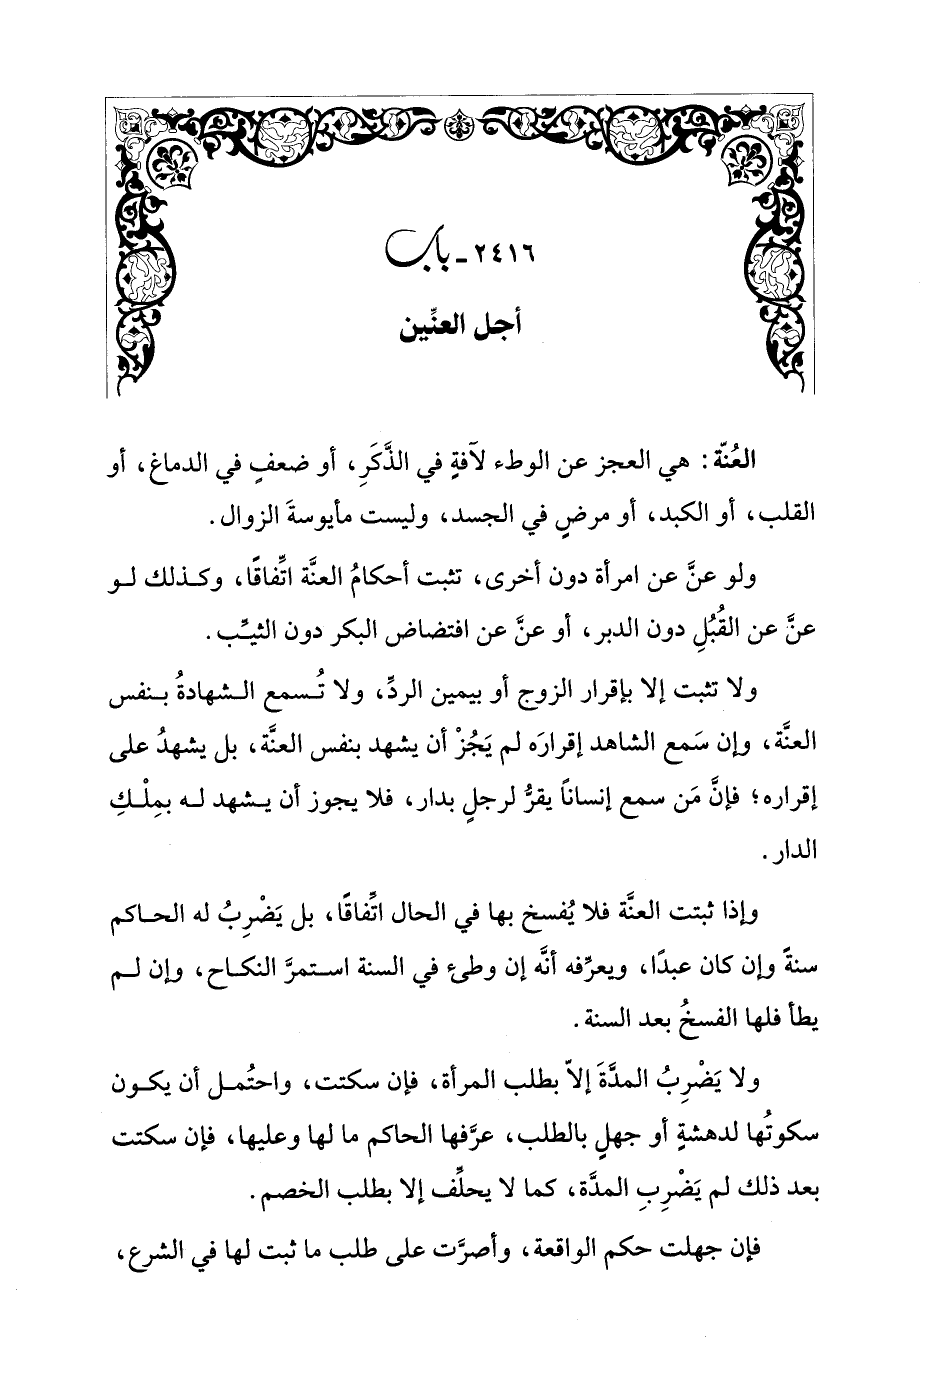 ٢٤١٦ - باب
أجل العنِّين
العُنّة: هي العجز عن الوطء لآفةٍ في الذَّكَرِ، أو ضعفٍ في الدماغ، أو
القلب، أو الكبد، أو مرضٍ في الجسد، وليست مأيوسةَ الزوال.
ولو عنَّ عن امرأة دون أخرى، تثبت أحكامُ العنَّة اتِّفاقًا، وكذلك لو
عنَّ عن القُبُلِ دون الدبر، أو عنَّ عن افتضاض البكر دون الثيِّب.
ولا تثبت إلا بإقرار الزوج أو بيمين الردِّ، ولا تُسمع الشهادةُ بنفس
العنَّة، وإن سَمع الشاهد إقرارَه لم يَجُزْ أن يشهد بنفس العنَّة، بل يشهدُ على
إقراره؛ فإنَّ مَن سمع إنساناً يقرُّ لرجلٍ بدار، فلا يجوز أن يشهد له بمِلْكِ
الدار.
وإذا ثبتت العنَّة فلا يُفسخ بها في الحال اتِّفاقًا، بل يَضْرِبُ له الحاكم
سنةً وإن كان عبدًا، ويعرِّفه أنَّه إن وطئ في السنة استمرَّ النكاح، وإن لم
يطأ فلها الفسخُ بعد السنة.
ولا يَضْرِبُ المدَّةَ إلاّ بطلب المرأة، فإن سكتت، واحتُمل أن يكون
سكوتُها لدهشةٍ أو جهلٍ بالطلب، عرَّفها الحاكم ما لها وعليها، فإن سكتت
بعد ذلك لم يَضْرِبِ المدَّة، كما لا يحلِّف إلا بطلب الخصم.
فإن جهلت حكم الواقعة، وأصرَّت على طلب ما ثبت لها في الشرع،